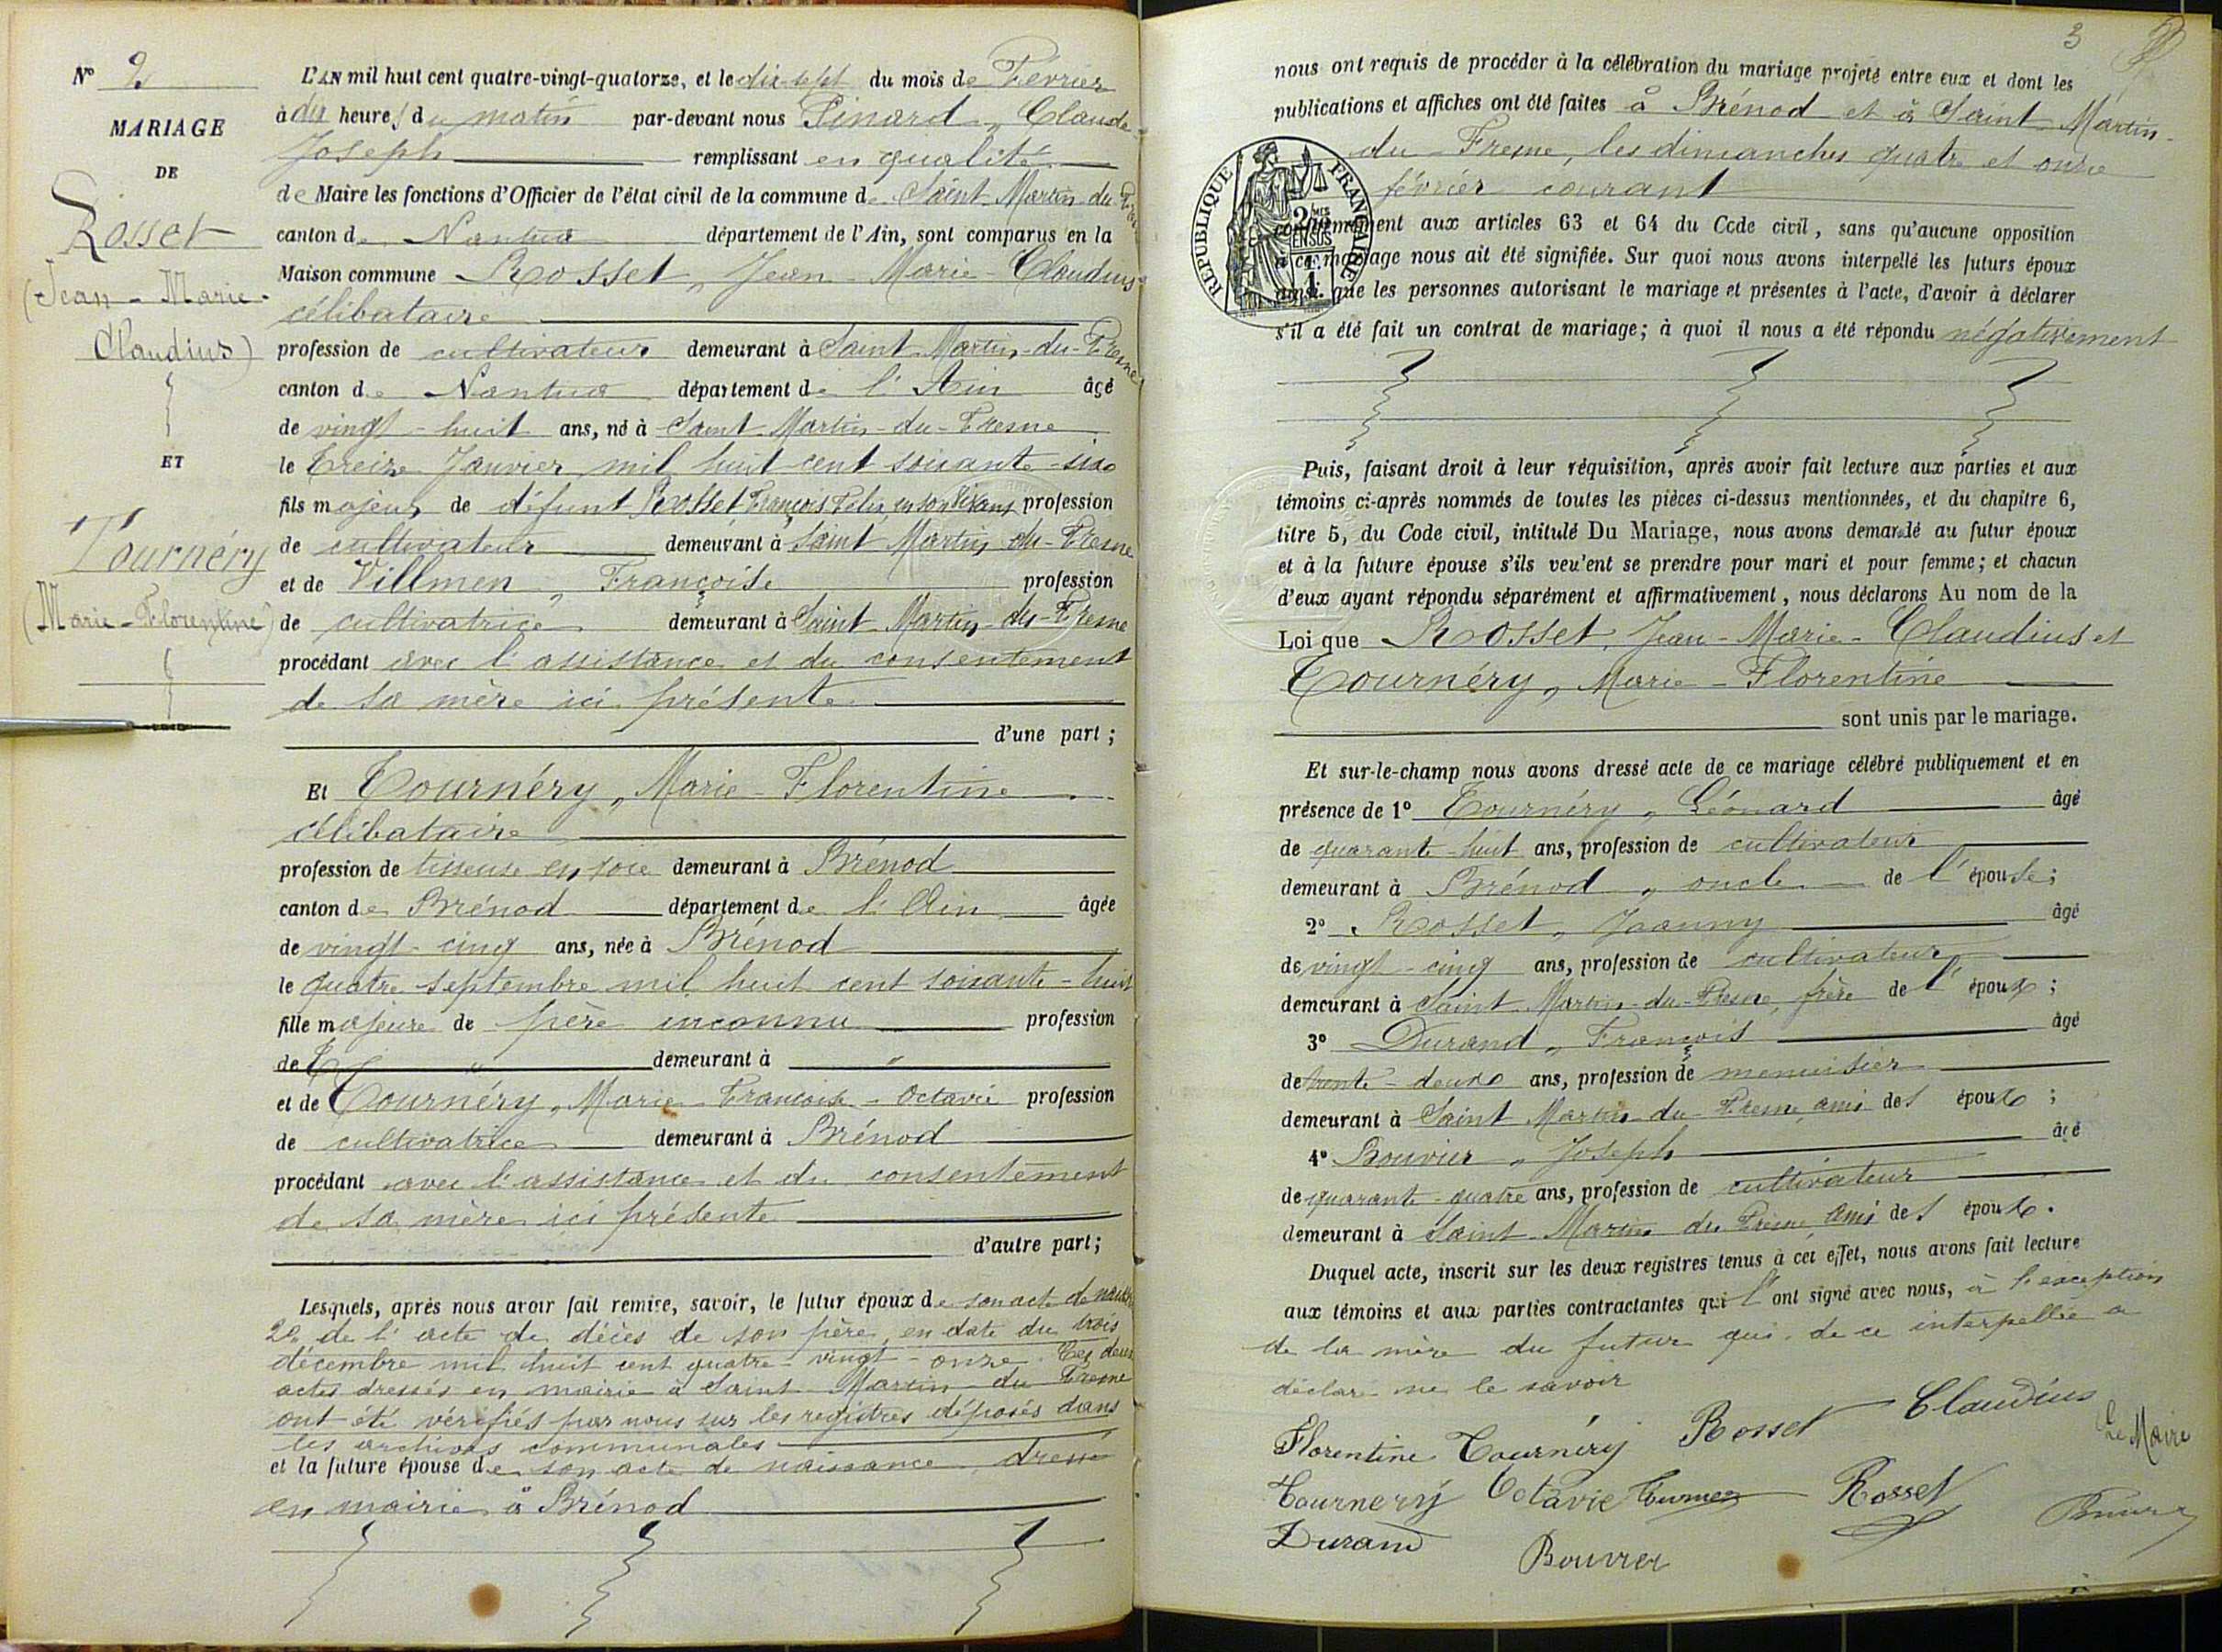 N° 2
MARIAGE
DE
Rosset
(Jean-Marie-
Claudius)
ET
Tournéry
(Marie-Florentine)
L'AN mil huit cent quatre-vingt-quatorze, et le dix-sept du mois de Février
à dix heures du matin par-devant nous Pinard, Claude
Joseph remplissant en qualité
de Maire les fonctions d'Officier de l'état civil de la commune de Saint-Martin-du-Fresne
canton de Nantua département de l'Ain, sont comparus en la
Maison commune Rosset, Jean-Marie-Claudius
célibataire
profession de cultivateur demeurant à Saint-Martin-du-Fresne
canton de Nantua département de l'Ain âgé
de vingt-huit ans, né à Saint-Martin-du-Fresne
le treize Janvier mil huit cent soixante-six
fils majeur de défunt Rosset François Félix, en son vivant profession
de cultivateur demeurant à Saint Martin-du-Fresne
et de Villmen, Françoise profession
de cultivatrice demeurant à Saint Martin-du-Fresne
procédant avec l'assistance et du consentement
de sa mère ici présente
d'une part ;
Et Tournéry, Marie-Florentine
célibataire
profession de tisseuse en soie demeurant à Brénod
canton de Brénod département de l'Ain âgée
de vingt-cinq ans, née à Brénod
le quatre septembre mil huit cent soixante-huit
fille majeure de père inconnu profession
de " demeurant à "
et de Tournéry, Marie-Françoise-Octavie profession
de cultivatrice demeurant à Brénod
procédant avec l'assistance et du consentement
de sa mère ici présente
d'autre part ;
Lesquels, après nous avoir fait remise, savoir, le futur époux de son acte de naissance
2° de l'acte de décès de son père, en date du trois
décembre mil huit cent quatre-vingt-onze. Ces deux
actes dressés en mairie à Saint-Martin-du Fresne
ont été vérifiés par nous sur les registres déposés dans
les archives communales
et la future épouse de son acte de naissance dressé
en mairie à Brénod
3
nous ont requis de procéder à la célébration du mariage projeté entre eux et dont les
publications et affiches ont été faites à Brénod et à Saint-Martin-
du-Fresne, les dimanches quatre et onze
février courant
RÉPUBLIQUE FRANÇAISE
2/10mes
EN SUS
conformément aux articles 63 et 64 du Code civil, sans qu'aucune opposition
à ce mariage nous ait été signifiée. Sur quoi nous avons interpellé les futurs époux
ainsi que les personnes autorisant le mariage et présentes à l'acte, d'avoir à déclarer
s'il a été fait un contrat de mariage; à quoi il nous a été répondu négativement
Puis, faisant droit à leur réquisition, après avoir fait lecture aux parties et aux
témoins ci-après nommés de toutes les pièces ci-dessus mentionnées, et du chapitre 6,
titre 5, du Code civil, intitulé Du Mariage, nous avons demandé au futur époux
et à la future épouse s'ils veulent se prendre pour mari et pour femme; et chacun
d'eux ayant répondu séparément et affirmativement, nous déclarons Au nom de la
Loi que Rosset, Jean-Marie-Claudius et
Tournéry, Marie-Florentine
sont unis par le mariage.
Et sur-le-champ nous avons dressé acte de ce mariage célébré publiquement et en
présence de 1° Tournéry, Léonard âgé
de quarante-huit ans, profession de cultivateur
demeurant à Brénod, oncle de l'épouse;
2° Rosset, Joanny âgé
de vingt-cinq ans, profession de cultivateur
demeurant à Saint Martin-du-Fresne, frère de l'époux;
3° Durand, François âgé
de trente-deux ans, profession de menuisier
demeurant à Saint Martin-du-Fresne ami des époux;
4° Bouvier, Joseph âgé
de quarante-quatre ans, profession de cultivateur
demeurant à Saint Martin du Fresne ami des époux.
Duquel acte, inscrit sur les deux registres tenus à cet effet, nous avons fait lecture
aux témoins et aux parties contractantes qui l'ont signé avec nous, à l'exception
de la mère du futur qui de ce interpellée a
déclaré ne le savoir
Florentine Tournéry Rosset Claudius
Le Maire
Tournery Octavie Rosset
Durand Bouvier